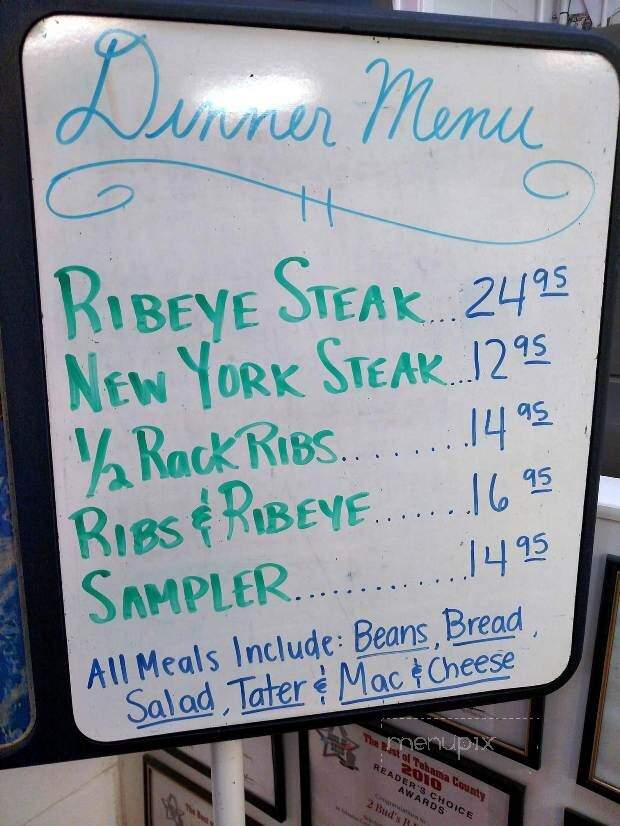 Dinner Menu
RIBEYE STEAK.... 24 95
NEW YORK STEAK... 12 95
1/2 RACK RIBS......... 14 95
RIBS & RIBEYE....... 16 95
SAMPLER............ 14 95
All Meals Include: Beans, Bread,
Salad, Tater & Mac & Cheese
menupix
The Best of Tehama County
2010
READER'S CHOICE
AWARDS
2 Bud's
The Best